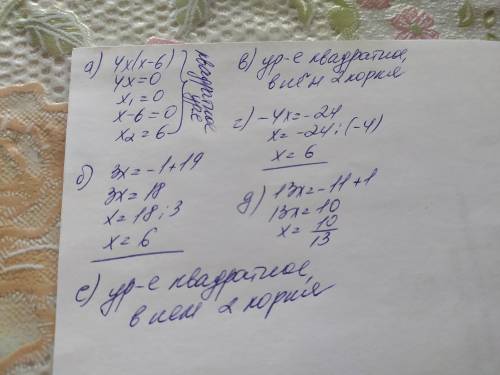 а) 4x(x-6)
4x=0
x₁=0
x-6=0
x₂=6
квадратное
ур-е
б) 3x=-1+19
3x=18
x=18:3
x=6
в) ур-е квадратное,
в нём 2 корня
г) -4x=-24
x=-24:(-4)
x=6
д) 13x=-11+1
13x=10
x=10/13
е) ур-е квадратное,
в нём 2 корня